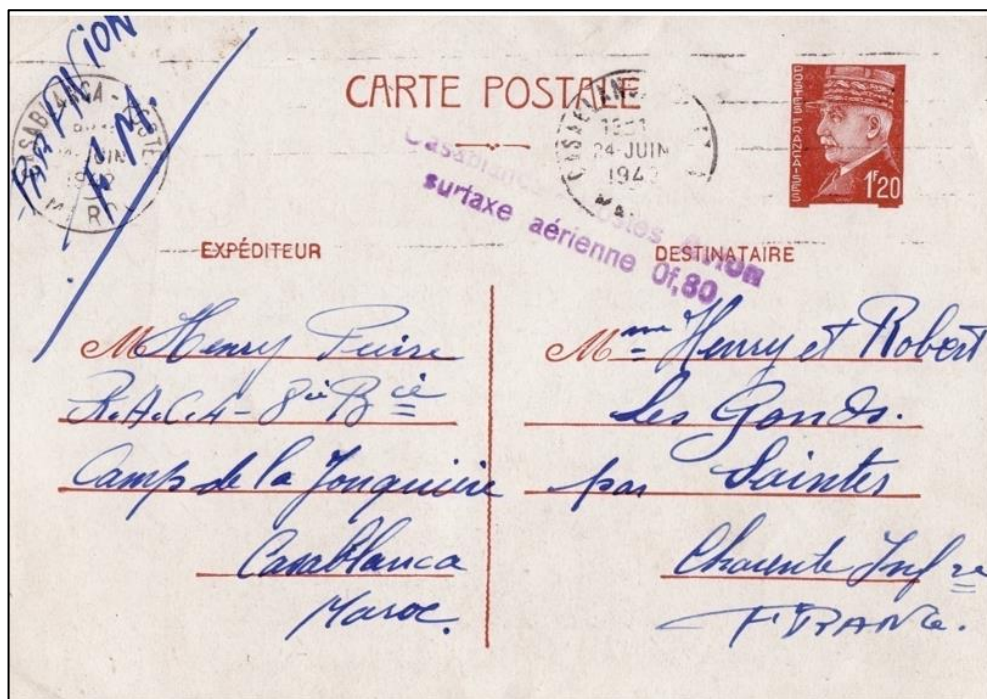 PAR AVION
CASABLANCA - POSTES
24 JUIN
1942
MAROC
CARTE POSTALE
CASABLANCA
24 JUIN
194
POSTES FRANÇAISES
1F20
Casablanca Postes Avion
surtaxe aérienne 0f,80
EXPÉDITEUR
DESTINATAIRE
M Henry
R.A.C.4 - 8ie Bie
Camp de la Jonquière
Casablanca
Maroc.
Mme Henry et Robert
Les Gonds.
par Saintes
Charente Infre
FRANCE.